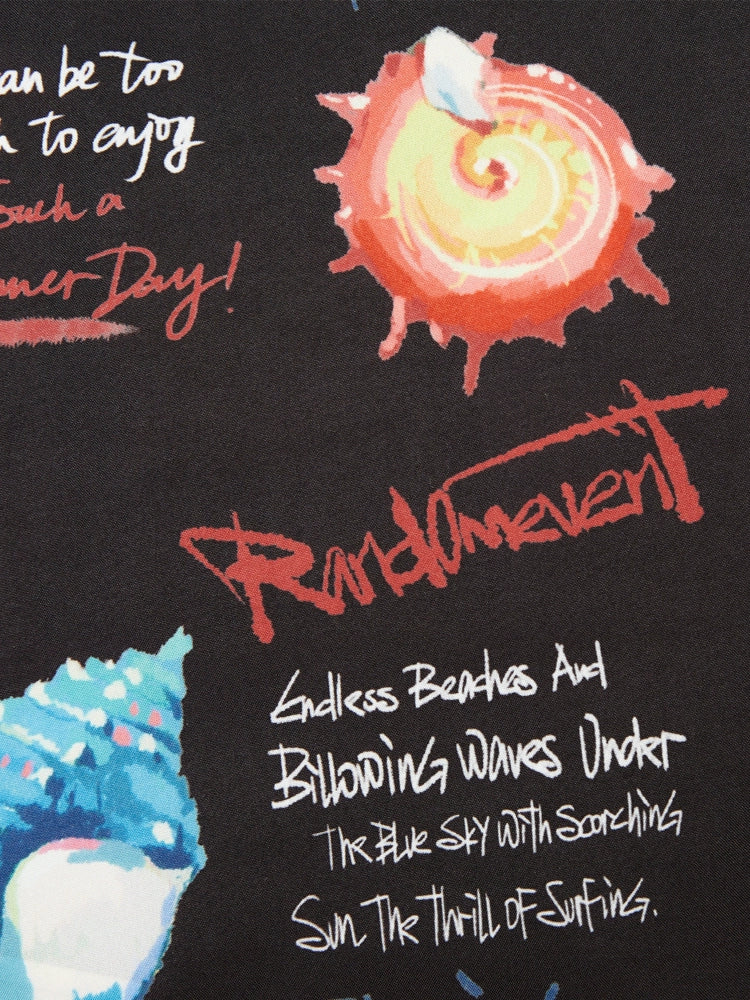 an be too
h to enjoy
Such a
mer Day!
Randomevent
Endless Beaches And
Billowing Waves Under
The Blue Sky With Scorching
Sun The Thrill OF Surfing.